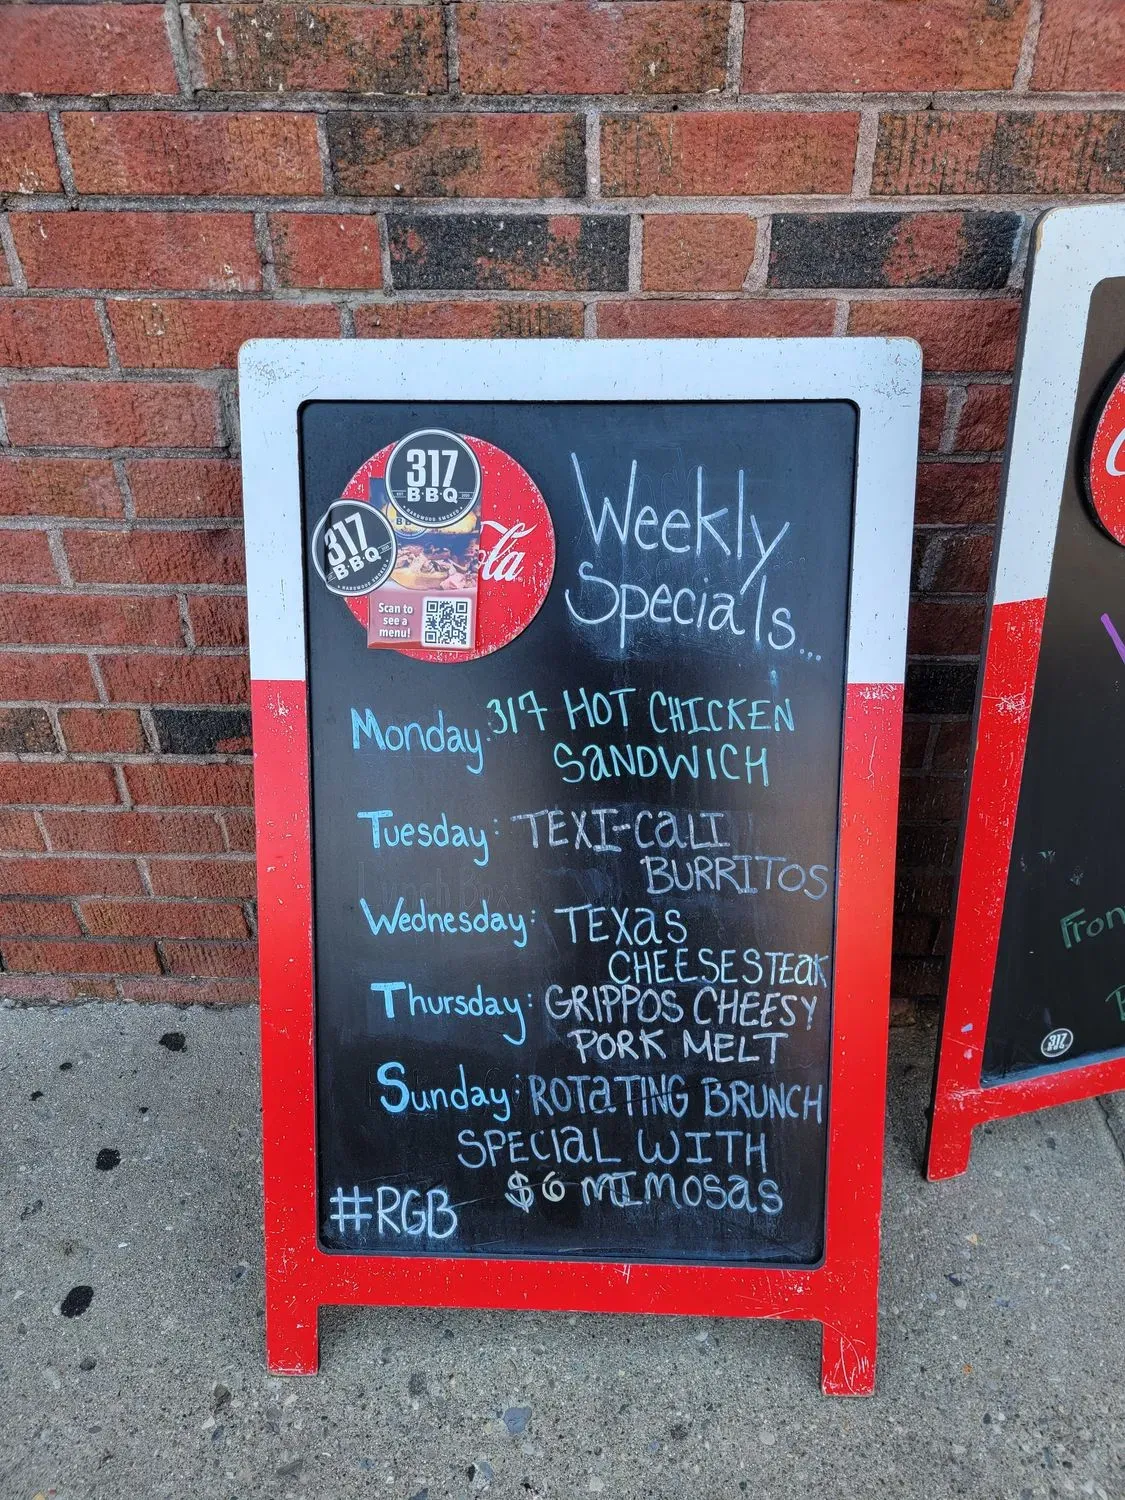 317
BBQ
HARDWOOD SMOKED
317
BBQ
HARDWOOD SMOKED
Scan to
see a
menu!
Weekly
Specials...
Monday: 317 HOT CHICKEN
SANDWICH
Tuesday: TEXI-CALI
BURRITOS
Wednesday: TEXAS
CHEESESTEAK
Thursday: GRIPPOS CHEESY
PORK MELT
Sunday: ROTATING BRUNCH
SPECIAL WITH
$6 MIMOSAS
#RGB
317